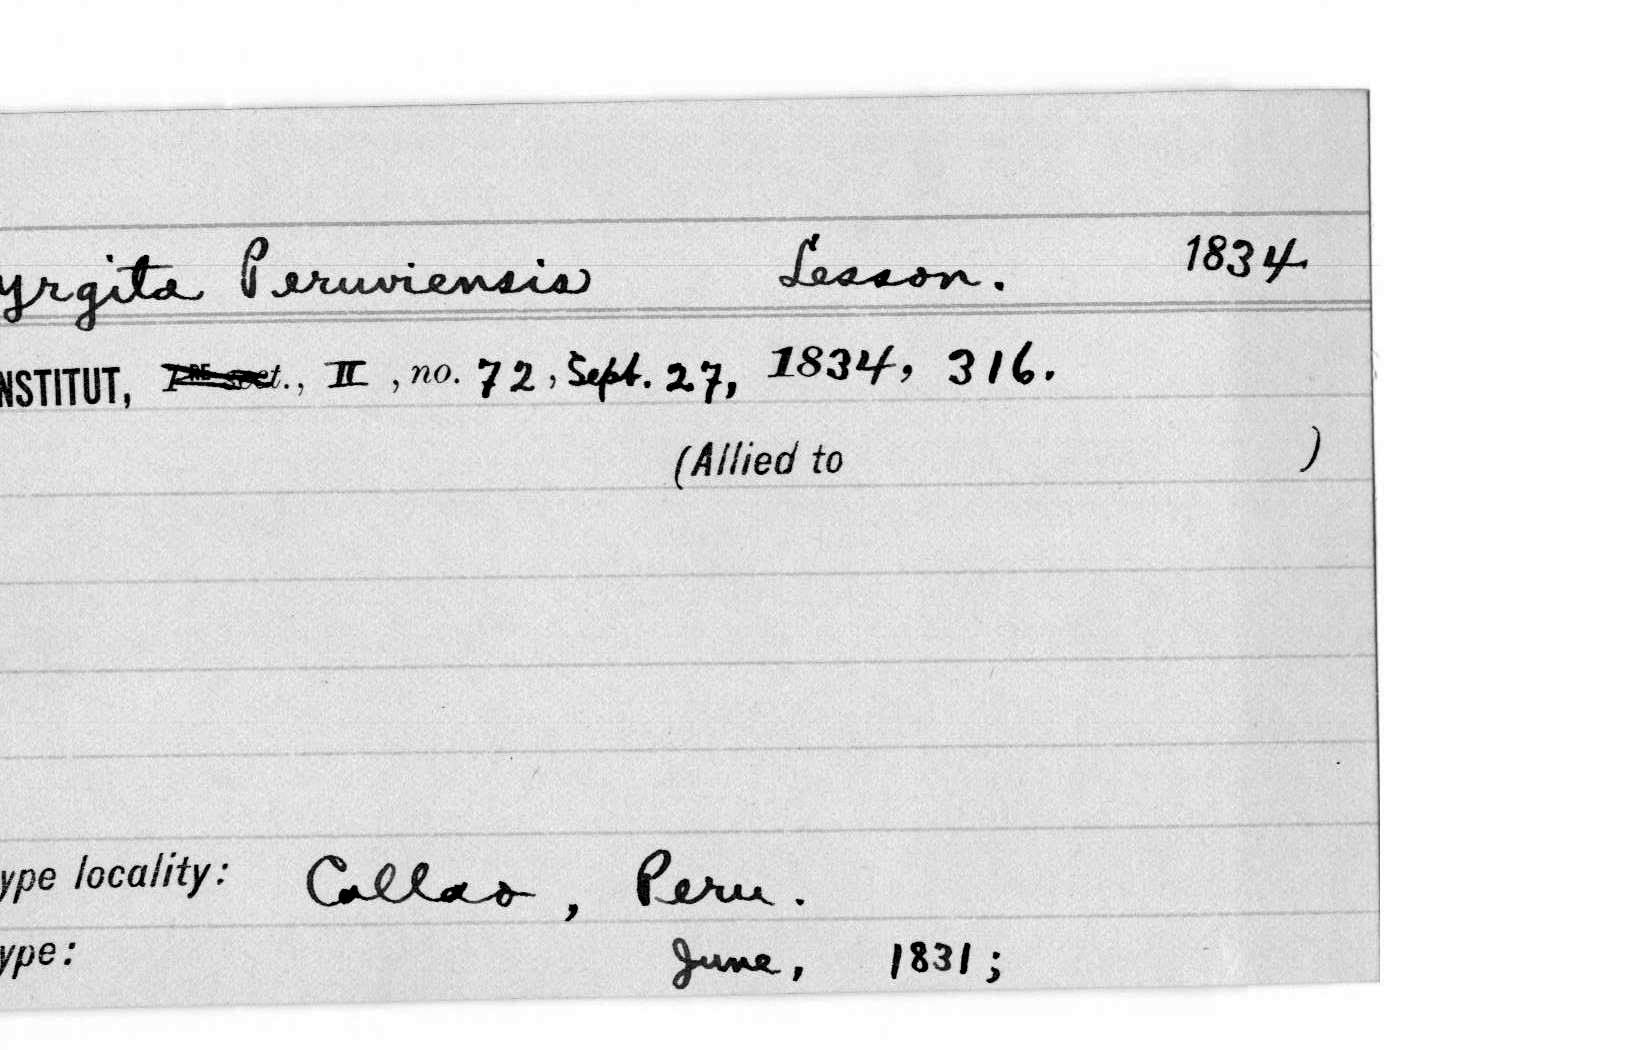 yrgita Peruviensis Lesson. 1834
NSTITUT, 1RE sect., II, no. 72, Sept. 27, 1834, 316.
(Allied to )
ype locality: Callao, Peru.
ype: June, 1831;